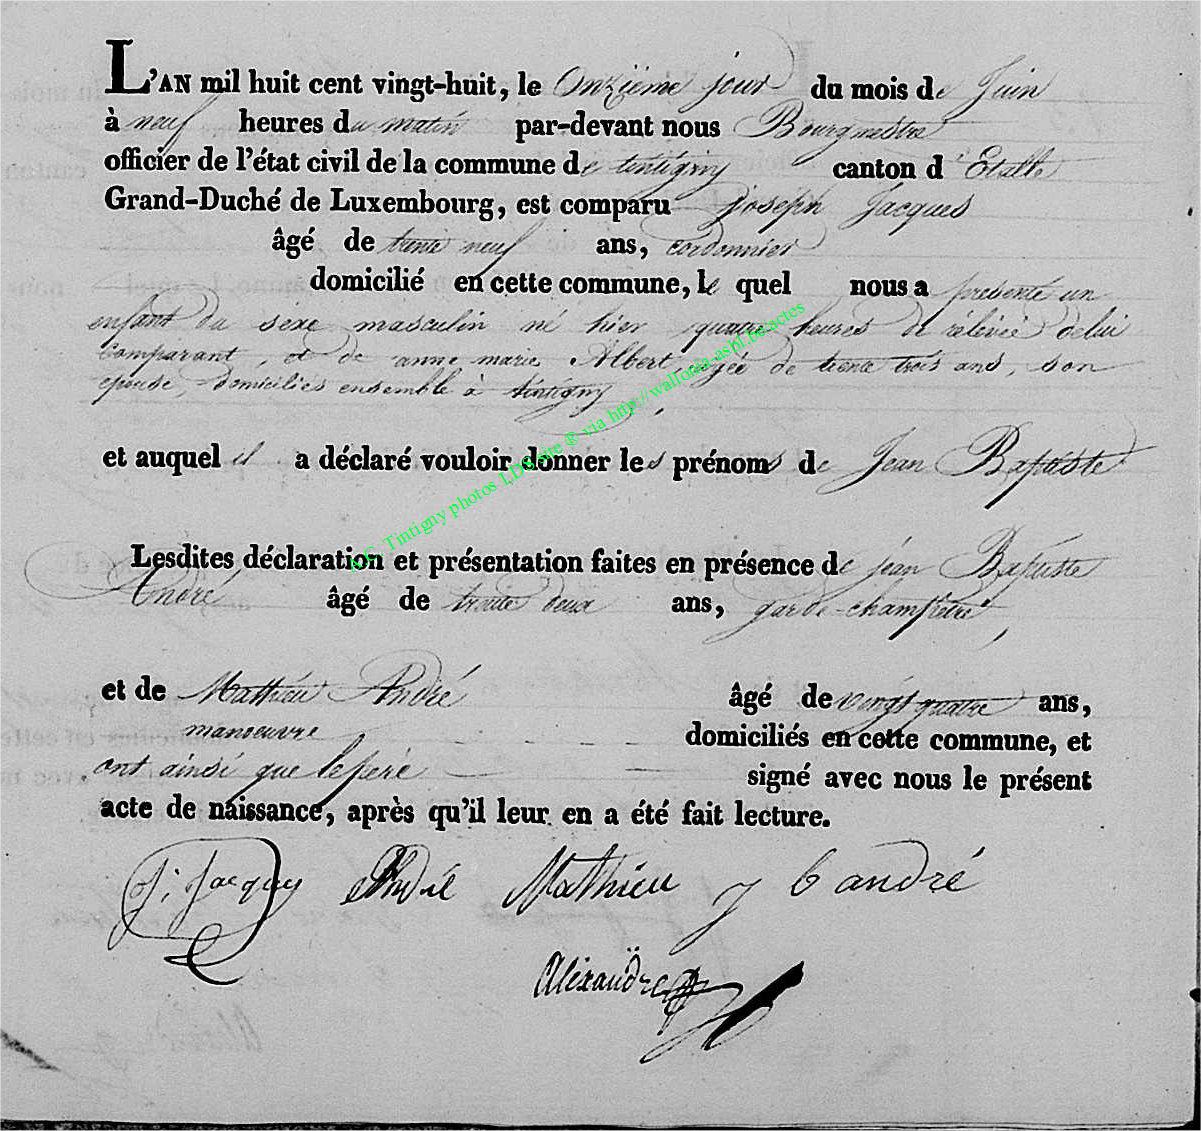 L'AN mil huit cent vingt-huit, le Onzième jour du mois de Juin
à neuf heures du matin par-devant nous Bourgmestre
officier de l'état civil de la commune de tintigny canton d'Etalle
Grand-Duché de Luxembourg, est comparu Joseph Jacques
âgé de trente neuf ans, cordonnier
domicilié en cette commune, le quel nous a présenté un
enfant du sexe masculin né hier quatre heures de rélévée de lui
comparant, et de anne marie Albert, agée de trente trois ans, son
epouse, domiciliés ensemble à tintigny,
et auquel il a déclaré vouloir donner les prénoms de Jean Baptiste
Lesdites déclaration et présentation faites en présence de jean Baptiste
André âgé de trente deux ans, garde-champêtre,
et de Mathieu André âgé de vingt quatre ans,
manoeuvre domiciliés en cette commune, et
ont ainsi que le père signé avec nous le présent
acte de naissance, après qu'il leur en a été fait lecture.
J: Jacques André Mathieu j b andré
Alexandre
A.G. Tintigny photos LDS site ® via http://wallonia-asbl.be/actes